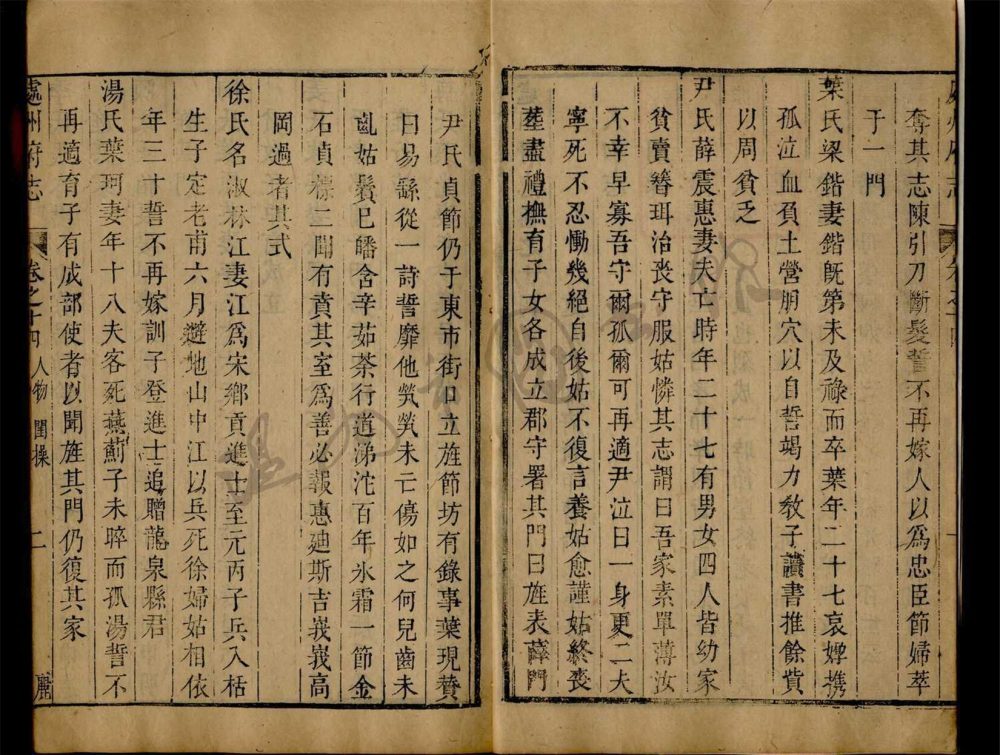 奪其志陳引刀斷髮誓不再嫁人以為忠臣節婦萃
于一門
葉氏梁鍇妻鍇旣第未及祿而卒葉年二十七哀婞携
孤泣血負土營嗣穴以自誓竭力敎子讀書推餘貲
以周貧乏
尹氏薛震惠妻夫亡時年二十七有男女四人皆幼家
貧賣簪珥治喪守服姑憐其志謂曰吾家素單薄汝
不幸早寡吾守爾孤爾可再適尹泣曰一身更二夫
寧死不忍慟幾絕自後姑不復言養姑愈謹姑終喪
塟盡禮橅育子女各成立郡守署其門曰旌表薛門
尹氏貞節仍于東市街口立旌節坊有錄事葉現賛
曰易繇從一詩誓靡他煢煢未亡傷如之何兒齒未
齔姑鬢已皤舍辛茹荼行道涕沱百年氷霜一節金
石貞標二閒有賁其室爲善必報惠廸斯吉峩峩高
岡過者其式
徐氏名淑林江妻江爲宋鄉貢進士至元丙子兵入栝
生子定老甫六月避地山中江以兵死徐婦姑相依
年三十誓不再嫁訓子登進士追贈龍泉縣君
湯氏葉珂妻年十八夫客死燕薊子未晬而孤湯誓不
再適育子有成部使者以聞旌其門仍復其家
處州府志
卷之十四
人物 閨操
二